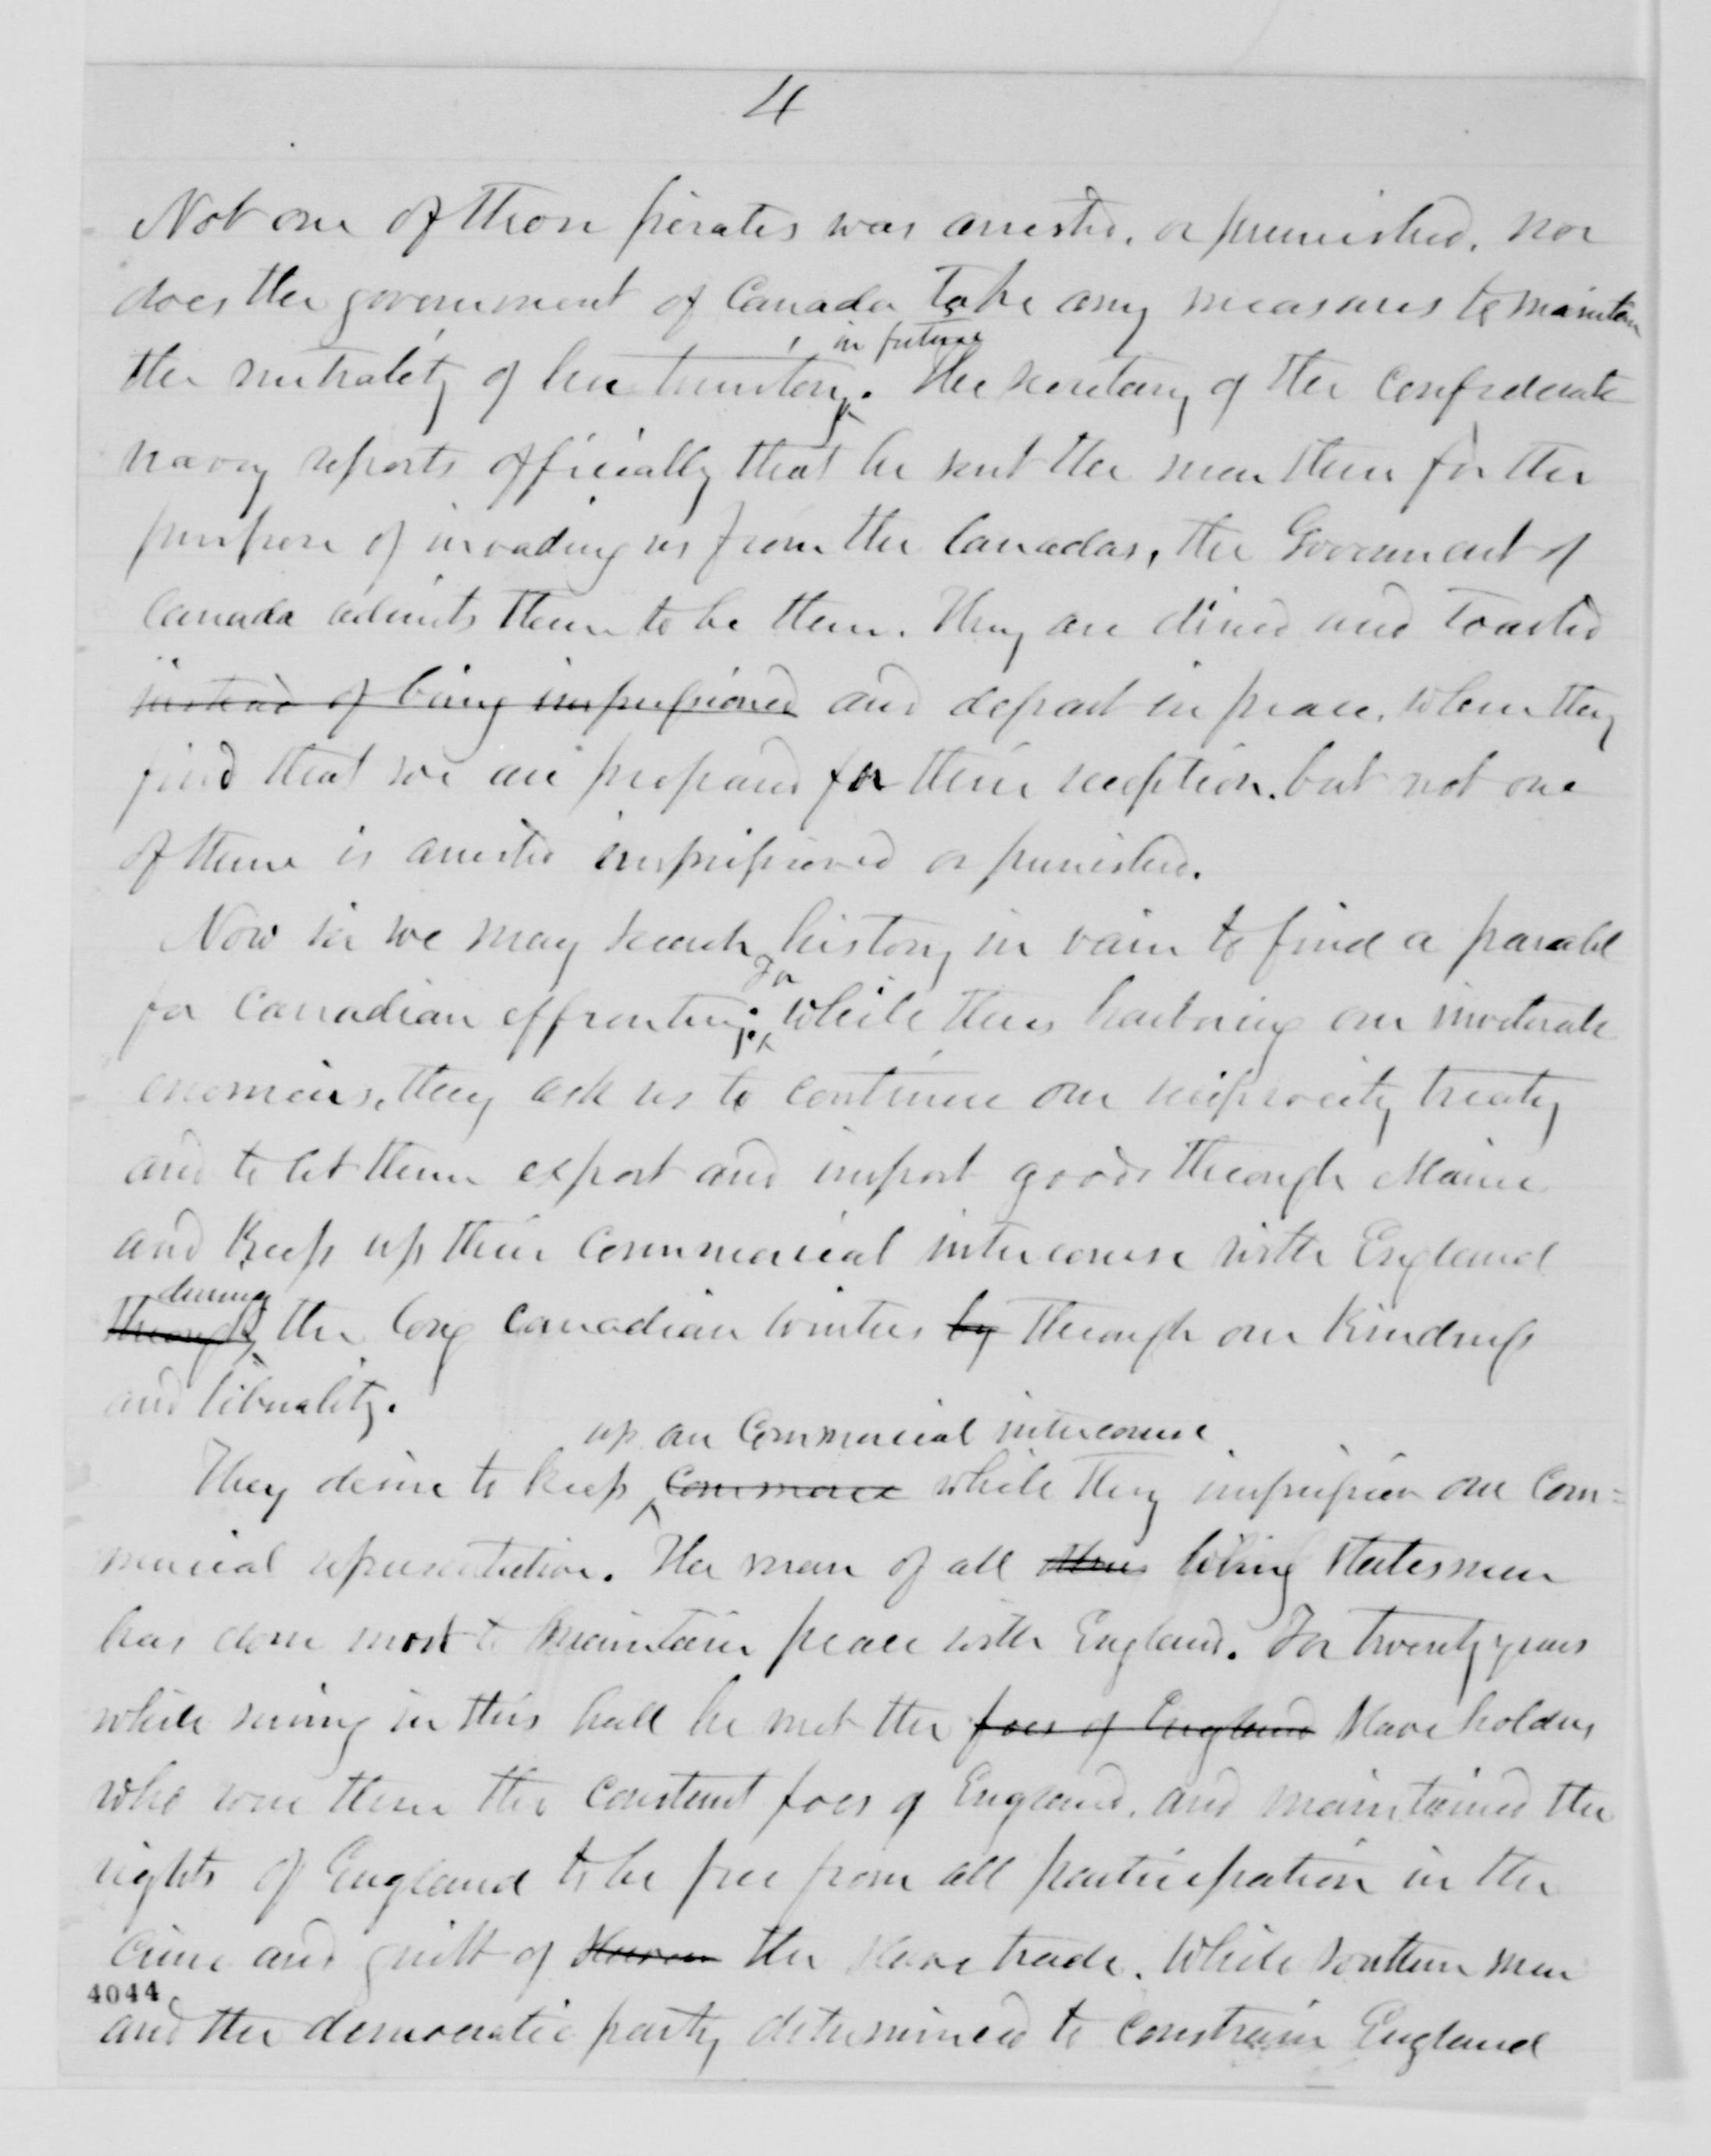 4
Not one of those pirates was arrested, or punished, nor
does the government of Canada take any measures to maintain
the neutrality of her territory, in future. The secretary of the Confederate
navy reports officially that he sent the men there for the
purpose of invading us from the Canadas, the Government of
Canada admits them to be there. They are dined and toasted
instead of being imprisoned and depart in peace, when they
find that we are prepared for their reception. but not one
of them is arrested imprisoned or punished.
Now sir we may search history in vain to find a parallel
for Canadian effrontery. For while thus harboring our inveterate
enemies, they ask us to continue our reciprocity treaty
and to let them export and import goods through Maine
and Keep up their commercial intercourse with England
through during the long Canadian winters by through our Kindness
and liberality.
up our Commercial intercourse
They desire to keep commerce while they imprison our Com=
mercial representative. The man of all living statesmen
has done most to maintain peace with England. For twenty years
while serving in this hall he met the foes of England Slave holders
who were then the constant foes of England, and maintained the
rights of England to be free from all participation in the
crime and guilt of the slave trade. While southern men
4044
and the democratic party determined to constrain England